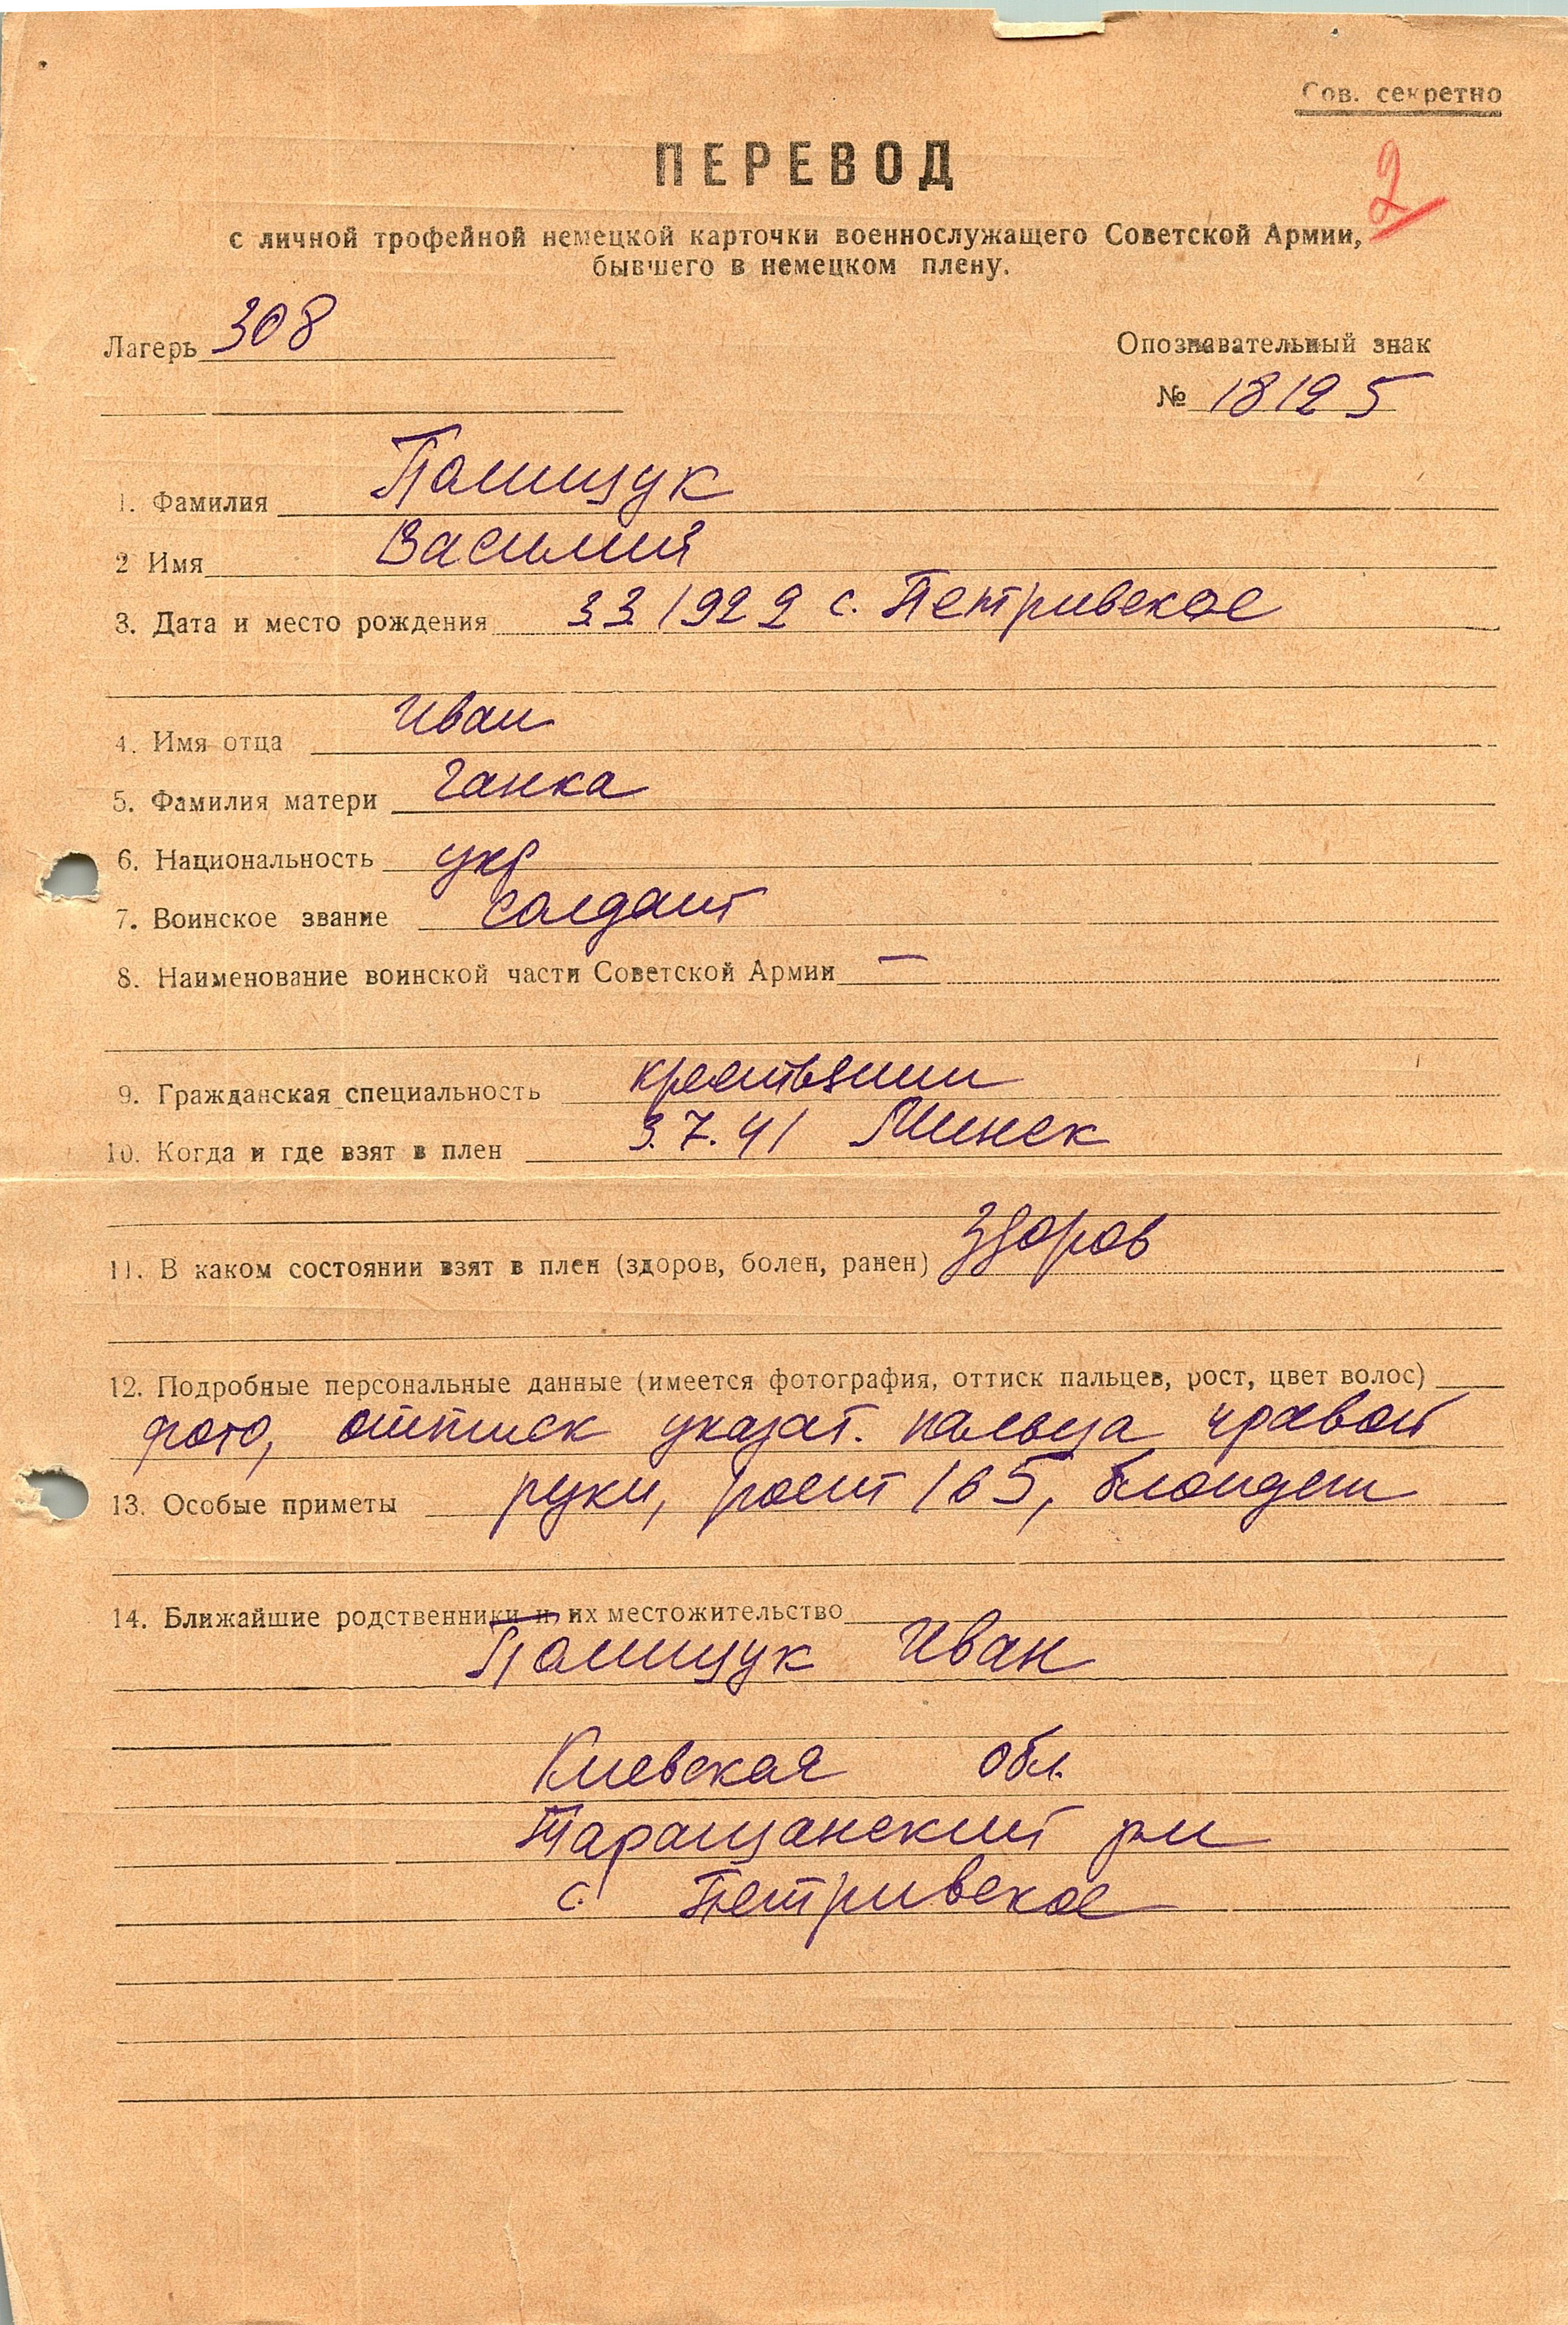 Сов. секретно
ПЕРЕВОД
2
с личной трофейной немецкой карточки военнослужащего Советской Армии,
бывшего в немецком плену.
Лагерь 308
Опознавательный знак
№ 18125
1. Фамилия Полищук
2 Имя Василий
3. Дата и место рождения 3 3 1922 с. Петривское
4. Имя отца Иван
5. Фамилия матери Ганка
6. Национальность укр
7. Воинское звание солдат
8. Наименование воинской части Советской Армии —
9. Гражданская специальность крестьянин
10. Когда и где взят в плен 3.7.41 Минск
11. В каком состоянии взят в плен (здоров, болен, ранен) здоров
12. Подробные персональные данные (имеется фотография, оттиск пальцев, рост, цвет волос)
фото, оттиск указат. пальца правой
13. Особые приметы руки, рост 165, блондин
14. Ближайшие родственники и их местожительство
Полищук Иван
Киевская обл.
Таращанский рн
с. Петривское